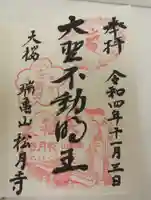 奉拝
令和四年十一月三日
大聖不動明王
天桜
瑞亀山 松月寺